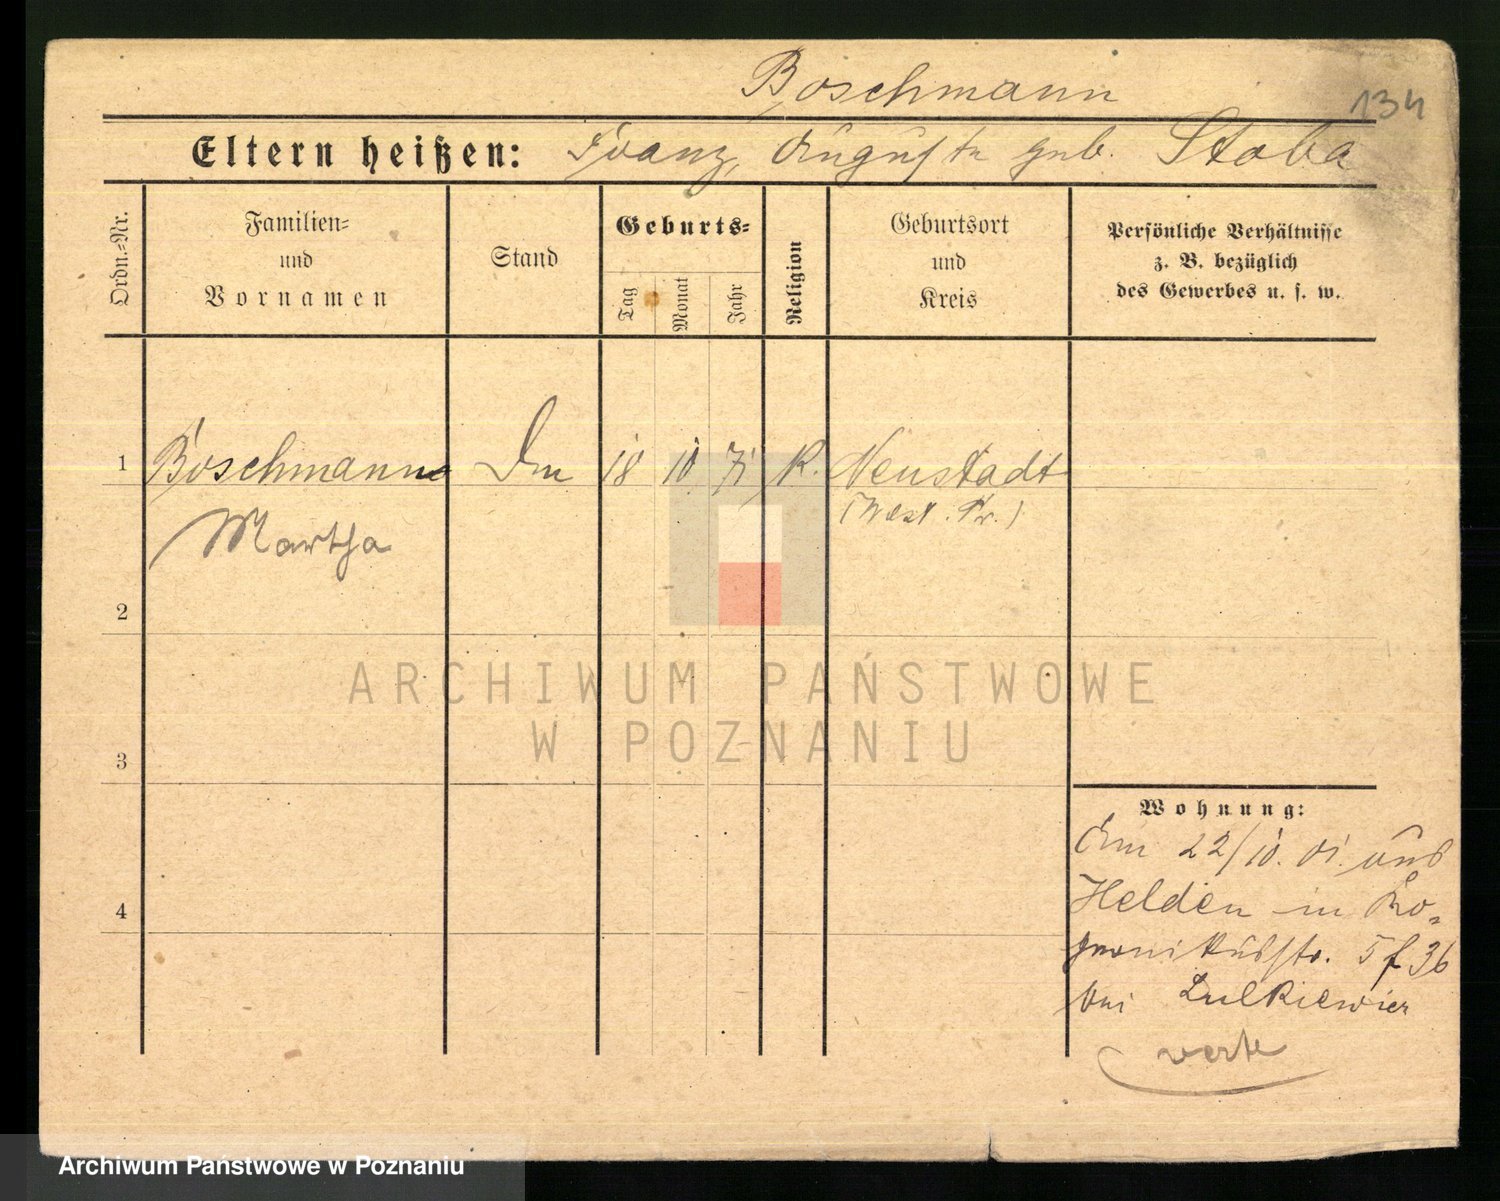 Boschmann
134
Eltern heißen: Franz, Auguste geb. Stoba
Ordn.=Nr.
Familien=
und
Vornamen
Stand
Geburts=
Tag
Monat
Jahr
Religion
Geburtsort
und
Kreis
Persönliche Verhältnisse
z. B. bezüglich
des Gewerbes u. s. w.
1 Boschmann 18 10 71 K. Neustadt
(West. Pr.)
Martha
2
3
4
Wohnung:
22/10. 01. aus
Helden in
5 f 36
bei Lulkiewicz
verte
ARCHIWUM PAŃSTWOWE
W POZNANIU
Archiwum Państwowe w Poznaniu